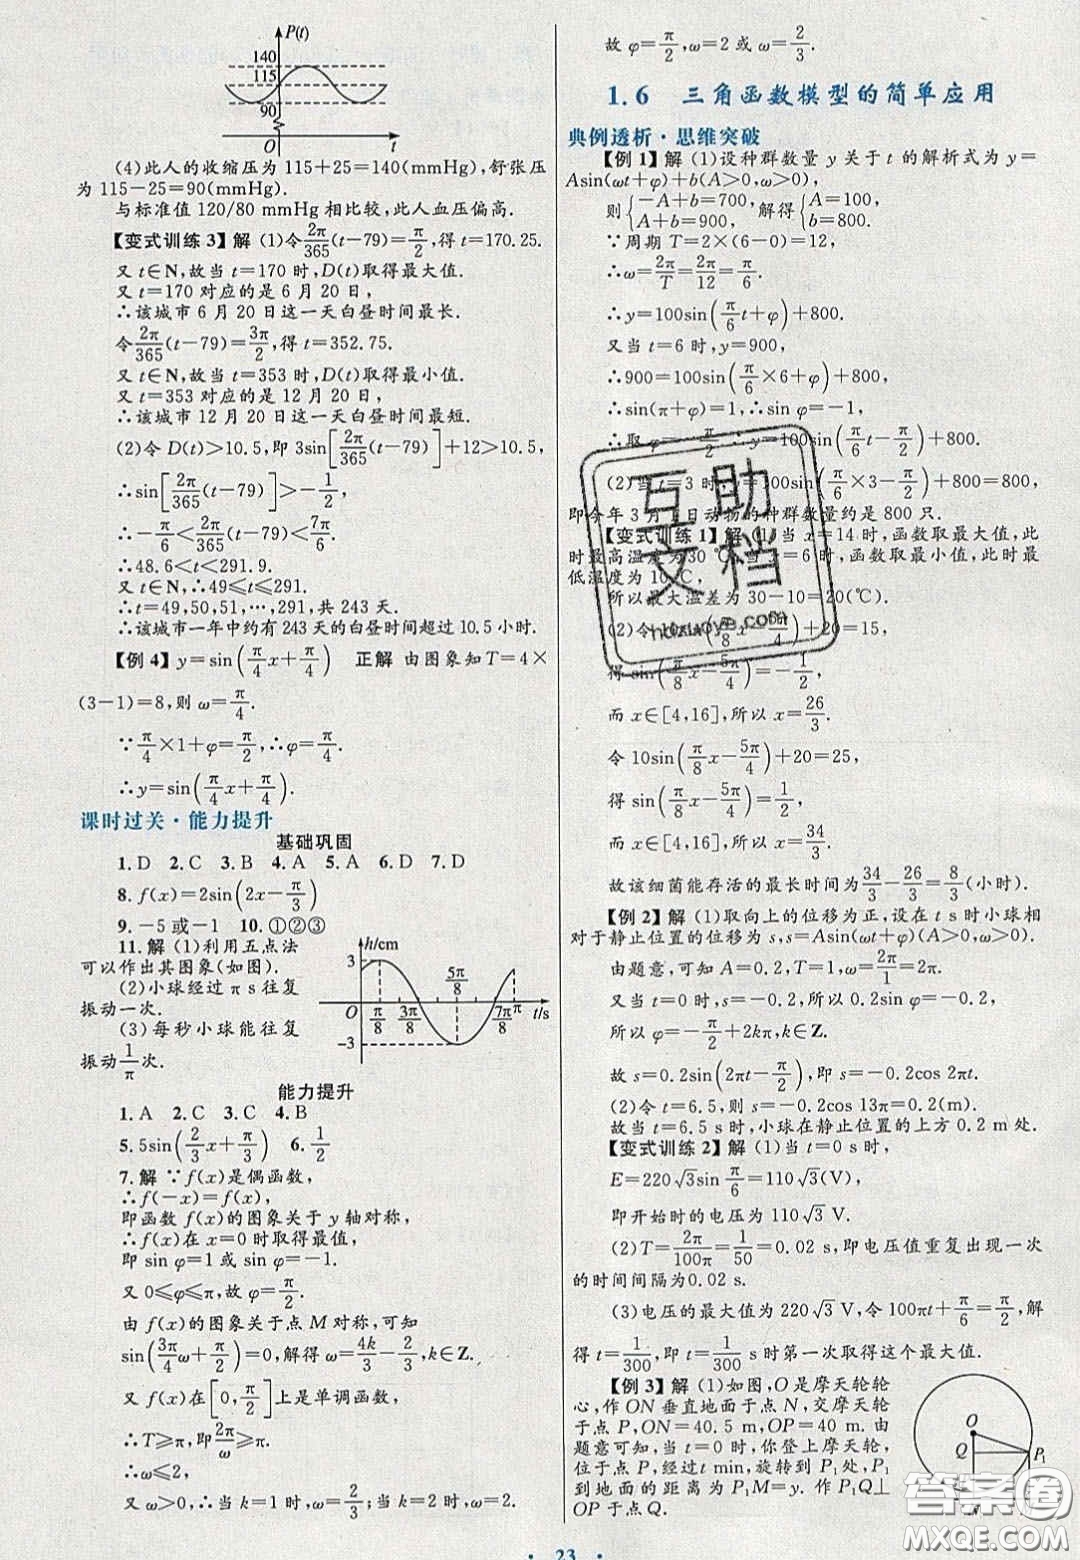 P(t)
140
115
90
O
t
(4)此人的收缩压为 115+25=140(mmHg),舒张压
为 115-25=90(mmHg).
与标准值 120/80 mmHg 相比较,此人血压偏高.
【变式训练 3】解 (1)令2π/365(t-79)=π/2,得 t=170.25.
又 t∈N,故当 t=170 时,D(t)取得最大值.
又 t=170 对应的是 6 月 20 日,
∴该城市 6 月 20 日这一天白昼时间最长.
令2π/365(t-79)=3π/2,得 t=352.75.
又 t∈N,故当 t=353 时,D(t)取得最小值.
又 t=353 对应的是 12 月 20 日,
∴该城市 12 月 20 日这一天白昼时间最短.
(2)令 D(t)>10.5,即 3sin[2π/365(t-79)]+12>10.5,
∴sin[2π/365(t-79)]>-1/2,
∴-π/6<2π/365(t-79)<7π/6.
∴48.6<t<291.9.
又 t∈N,∴49≤t≤291.
∴t=49,50,51,…,291,共 243 天.
∴该城市一年中约有 243 天的白昼时间超过 10.5 小时.
【例 4】y=sin(π/4x+π/4) 正解 由图象知 T=4×
(3-1)=8,则 ω=π/4.
∵π/4×1+φ=π/2,∴φ=π/4.
∴y=sin(π/4x+π/4).
课时过关·能力提升
基础巩固
1.D 2.C 3.B 4.A 5.A 6.D 7.D
8.f(x)=2sin(2x-π/3)
9.-5或-1 10.①②③
11.解 (1)利用五点法
可以作出其图象(如图).
(2)小球经过 π s 往复
振动一次.
(3)每秒小球能往复
振动1/π次.
h/cm
3
-3
O
π/8
3π/8
5π/8
7π/8
π
t/s
能力提升
1.A 2.C 3.C 4.B
5.5sin(2/3x+π/3) 6.1/2
7.解 ∵f(x)是偶函数,
∴f(-x)=f(x),
即函数 f(x)的图象关于 y 轴对称,
∴f(x)在 x=0 时取得最值,
即 sin φ=1 或 sin φ=-1.
又 0≤φ≤π,故 φ=π/2.
由 f(x)的图象关于点 M 对称,可知
sin(3π/4ω+π/2)=0,解得 ω=4k/3-2/3,k∈Z.
又 f(x)在[0,π/2]上是单调函数,
∴T≥π,即2π/ω≥π.
∴ω≤2,
又 ω>0,∴当 k=1 时,ω=2/3;当 k=2 时,ω=2.
故 φ=π/2,ω=2 或 ω=2/3.
1.6 三角函数模型的简单应用
典例透析·思维突破
【例 1】解 (1)设种群数量 y 关于 t 的解析式为 y=
Asin(ωt+φ)+b(A>0,ω>0),
则{-A+b=700, A+b=900, 解得{A=100, b=800.
∵周期 T=2×(6-0)=12,
∴ω=2π/T=2π/12=π/6.
∴y=100sin(π/6t+φ)+800.
又当 t=6 时,y=900,
∴900=100sin(π/6×6+φ)+800,
∴sin(π+φ)=1,∴sin φ=-1,
∴取 φ=-π/2,∴y=100sin(π/6t-π/2)+800.
(2)当 t=3 时,y=100sin(π/6×3-π/2)+800=800,
即今年 3 月 1 日动物的种群数量约是 800 只.
【变式训练 1】解 (1)当 x=14 时,函数取最大值,此
时最高温度为 30 ℃,当 x=6 时,函数取最小值,此时最
低温度为 10 ℃,
所以最大温差为 30-10=20(℃).
(2)令 10sin(π/8x-5π/4)+20=15,
得 sin(π/8x-5π/4)=-1/2,
而 x∈[4,16],所以 x=26/3.
令 10sin(π/8x-5π/4)+20=25,
得 sin(π/8x-5π/4)=1/2,
而 x∈[4,16],所以 x=34/3.
故该细菌能存活的最长时间为34/3-26/3=8/3(小时).
【例 2】解 (1)取向上的位移为正,设在 t s 时小球相
对于静止位置的位移为 s,s=Asin(ωt+φ)(A>0,ω>0).
由题意,可知 A=0.2,T=1,ω=2π/1=2π.
又当 t=0 时,s=-0.2,所以 0.2sin φ=-0.2,
所以 φ=-π/2+2kπ,k∈Z.
故 s=0.2sin(2πt-π/2)=-0.2cos 2πt.
(2)令 t=6.5,则 s=-0.2cos 13π=0.2(m).
故当 t=6.5 s 时,小球在静止位置的上方 0.2 m 处.
【变式训练 2】解 (1)当 t=0 时,
E=220√3sin π/6=110√3(V),
即开始时的电压为 110√3 V.
(2)T=2π/100π=1/50=0.02 s,即电压值重复出现一次
的时间间隔为0.02 s.
(3)电压的最大值为 220√3 V,令 100πt+π/6=π/2,解
得 t=1/300,即 t=1/300 s 时第一次取得这个最大值.
【例 3】解 (1)如图,O 是摩天轮轮
心,作 ON 垂直地面于点 N,交摩天轮
于点 P,ON=40.5 m,OP=40 m. 由
题意可知,当 t=0 时,你登上摩天轮
于点 P,经过 t min,旋转到 P₁处,P₁到
地面的距离为 P₁M=y. 作 P₁Q⊥
OP 于点 Q.
O
Q
P₁
N
互助
文档
答案圈
MXQE.COM
· 23 ·